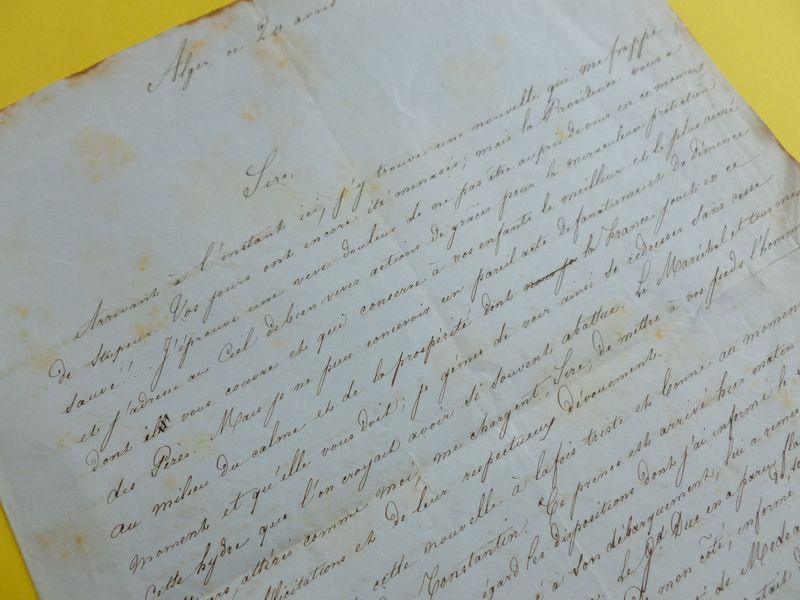 Alger, ce 20 avril
Sire,
Arrivant à l'instant ici, j'y trouve une nouvelle qui me frappe
de stupeur. Vos jours ont encore été menacés; mais la Providence vous a
sauvé!! J'éprouve une vive douleur de ne pas être auprès de vous en ce moment
et j'adresse au Ciel de bien vives actions de grâces pour la miraculeuse protection
dont il vous couvre et qui conserve à vos enfants le meilleur et le plus aimé
des Pères. Mais je ne puis concevoir un pareil acte de fanatisme et de démence
au milieu du calme et de la prospérité dont la France jouit en ce
moment et qu'elle vous doit; je gémis de voir ainsi se redresser sans cesse
cette hydre que l'on croyait avoir si souvent abattue. Le Maréchal et tous mes
altérés comme moi, me chargent, Sire, de mettre à vos pieds l'hommage
et de leur respectueux dévouement.
cette nouvelle à la fois triste et bonne au moment
Constantin. Ce prince est arrivé hier matin
égard les dispositions dont j'ai informé le
à son débarquement, lui a remis
Le Gd. Duc en a paru flatté
de mon côté, informé
de Medeah